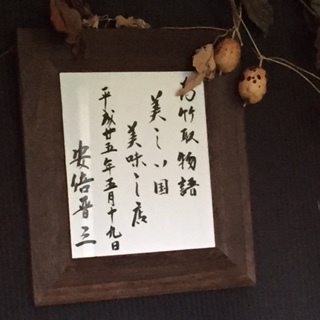 竹取物語
美しい国
美味し店
平成廿五年五月十九日
安倍晋三